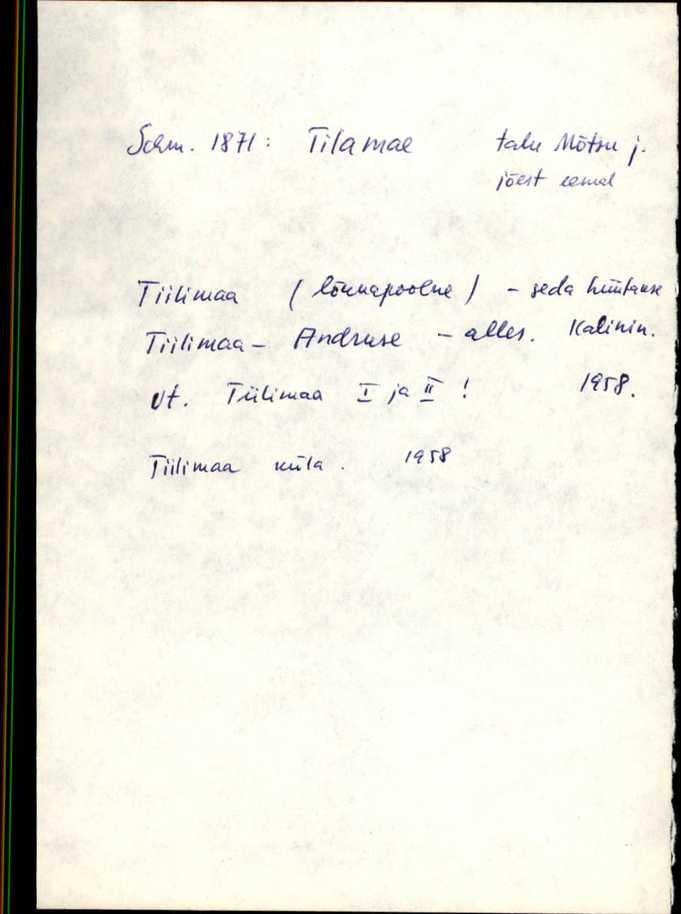 Schm. 1871: Tilamae talu Mõtsu j.
jõest eemal
Tiilimaa (lõunapoolne) - seda hüütakse
Tiilimaa - Andruse - alles. Kalinin.
Vt. Tiilimaa I ja II ! 1958.
Tiilimaa küla. 1958